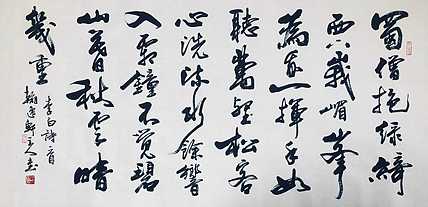 蜀僧抱綠綺
西下峨嵋峯
為我一揮手如
聽萬壑松客
心洗流水餘響
入霜鐘不覺碧
山暮秋雲暗
幾重
李白詩一首
主人書